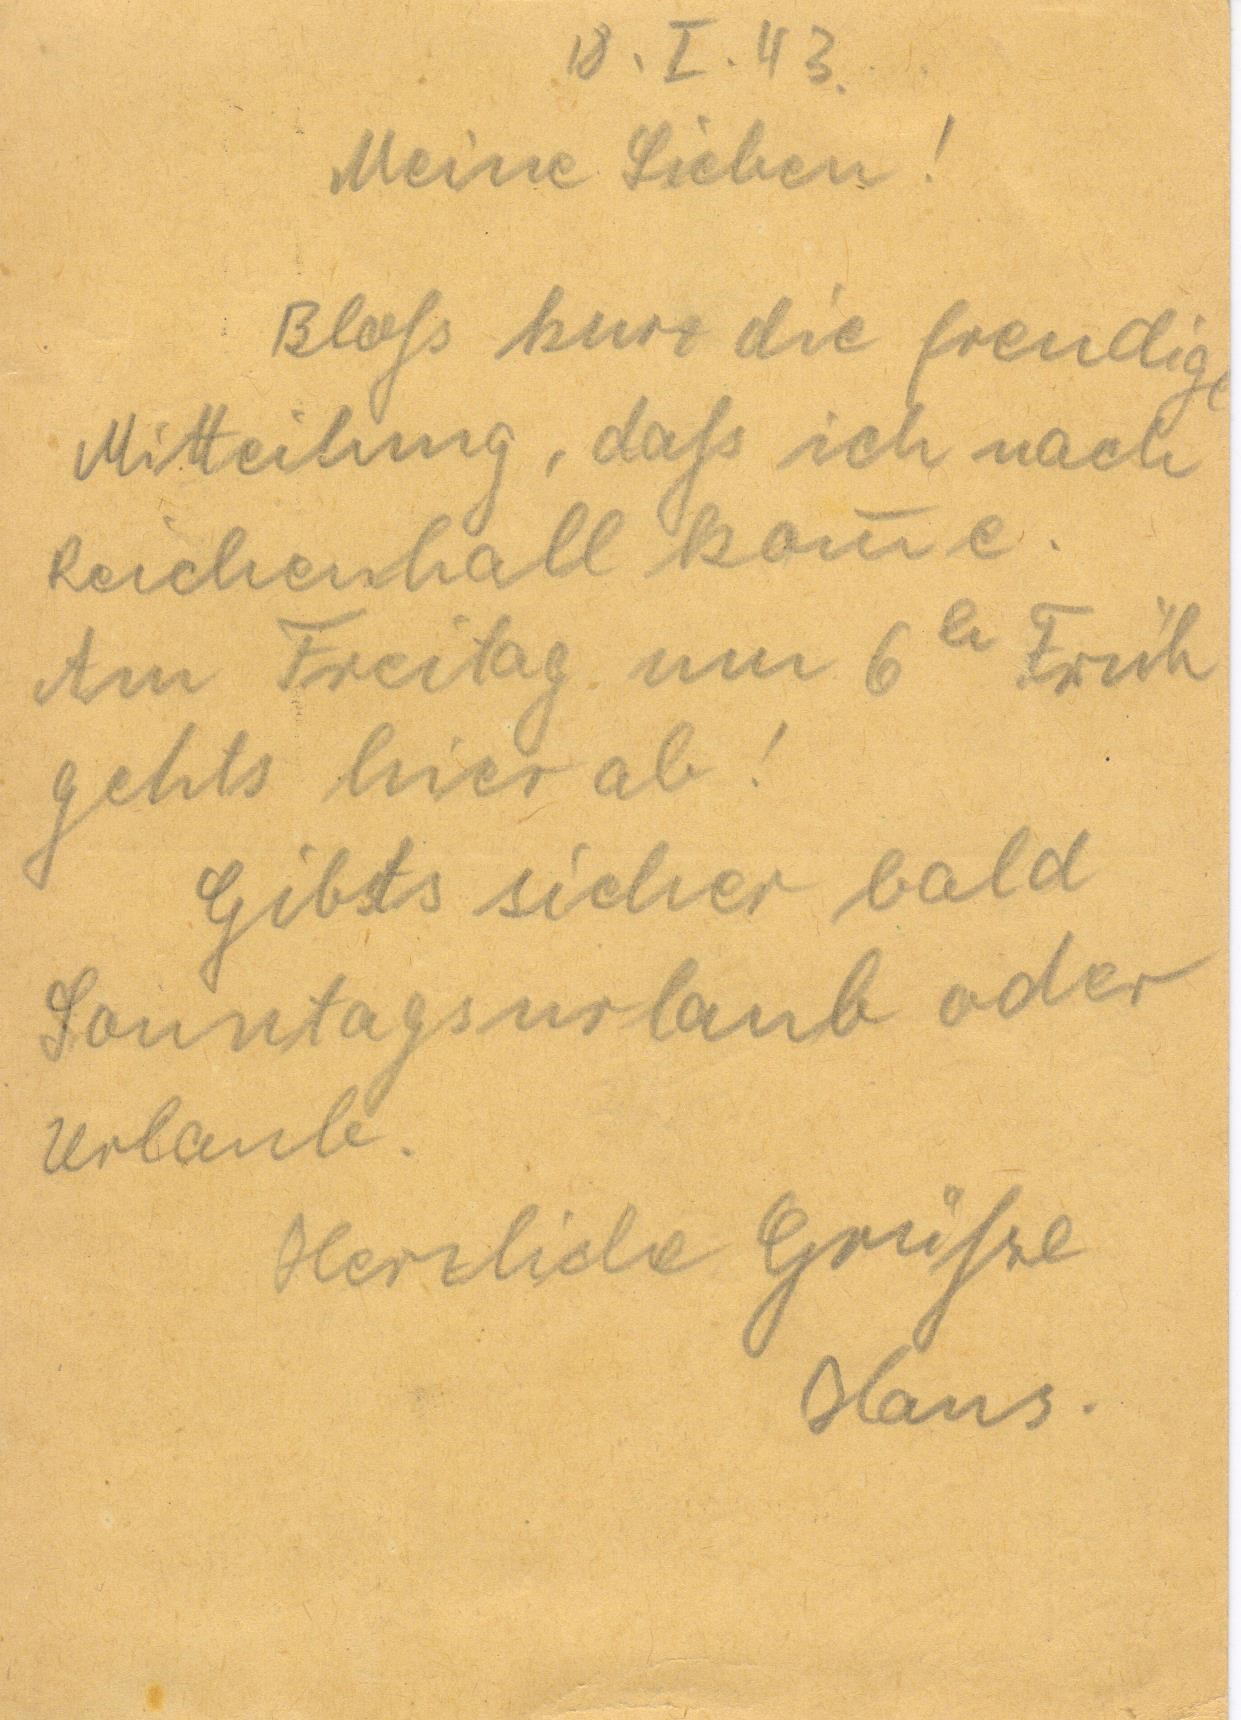 18. I. 43.
Meine Lieben!
Bloß kurz die freudige
Mitteilung, daß ich nach
Reichenhall kom̄e.
Am Freitag um 6 h Früh
gehts hier ab!
Gibts sicher bald
Sonntagsurlaub oder
Urlaub.
Herzliche Grüße
Hans.